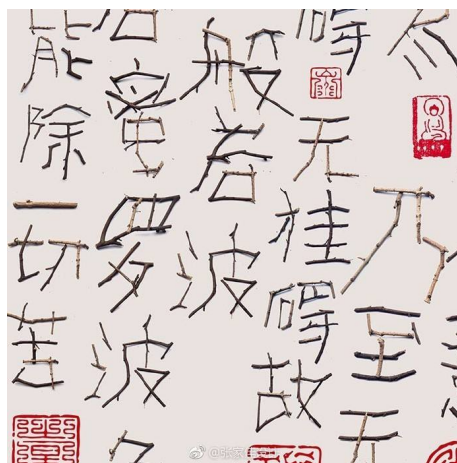 乃至无
碍无挂碍故
般若波
若蜜罗波
能除一切苦